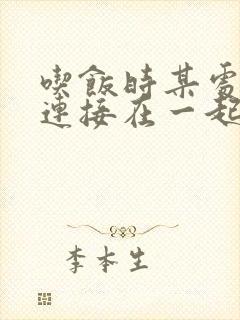 喫飯時某處
連接在一起
李本生